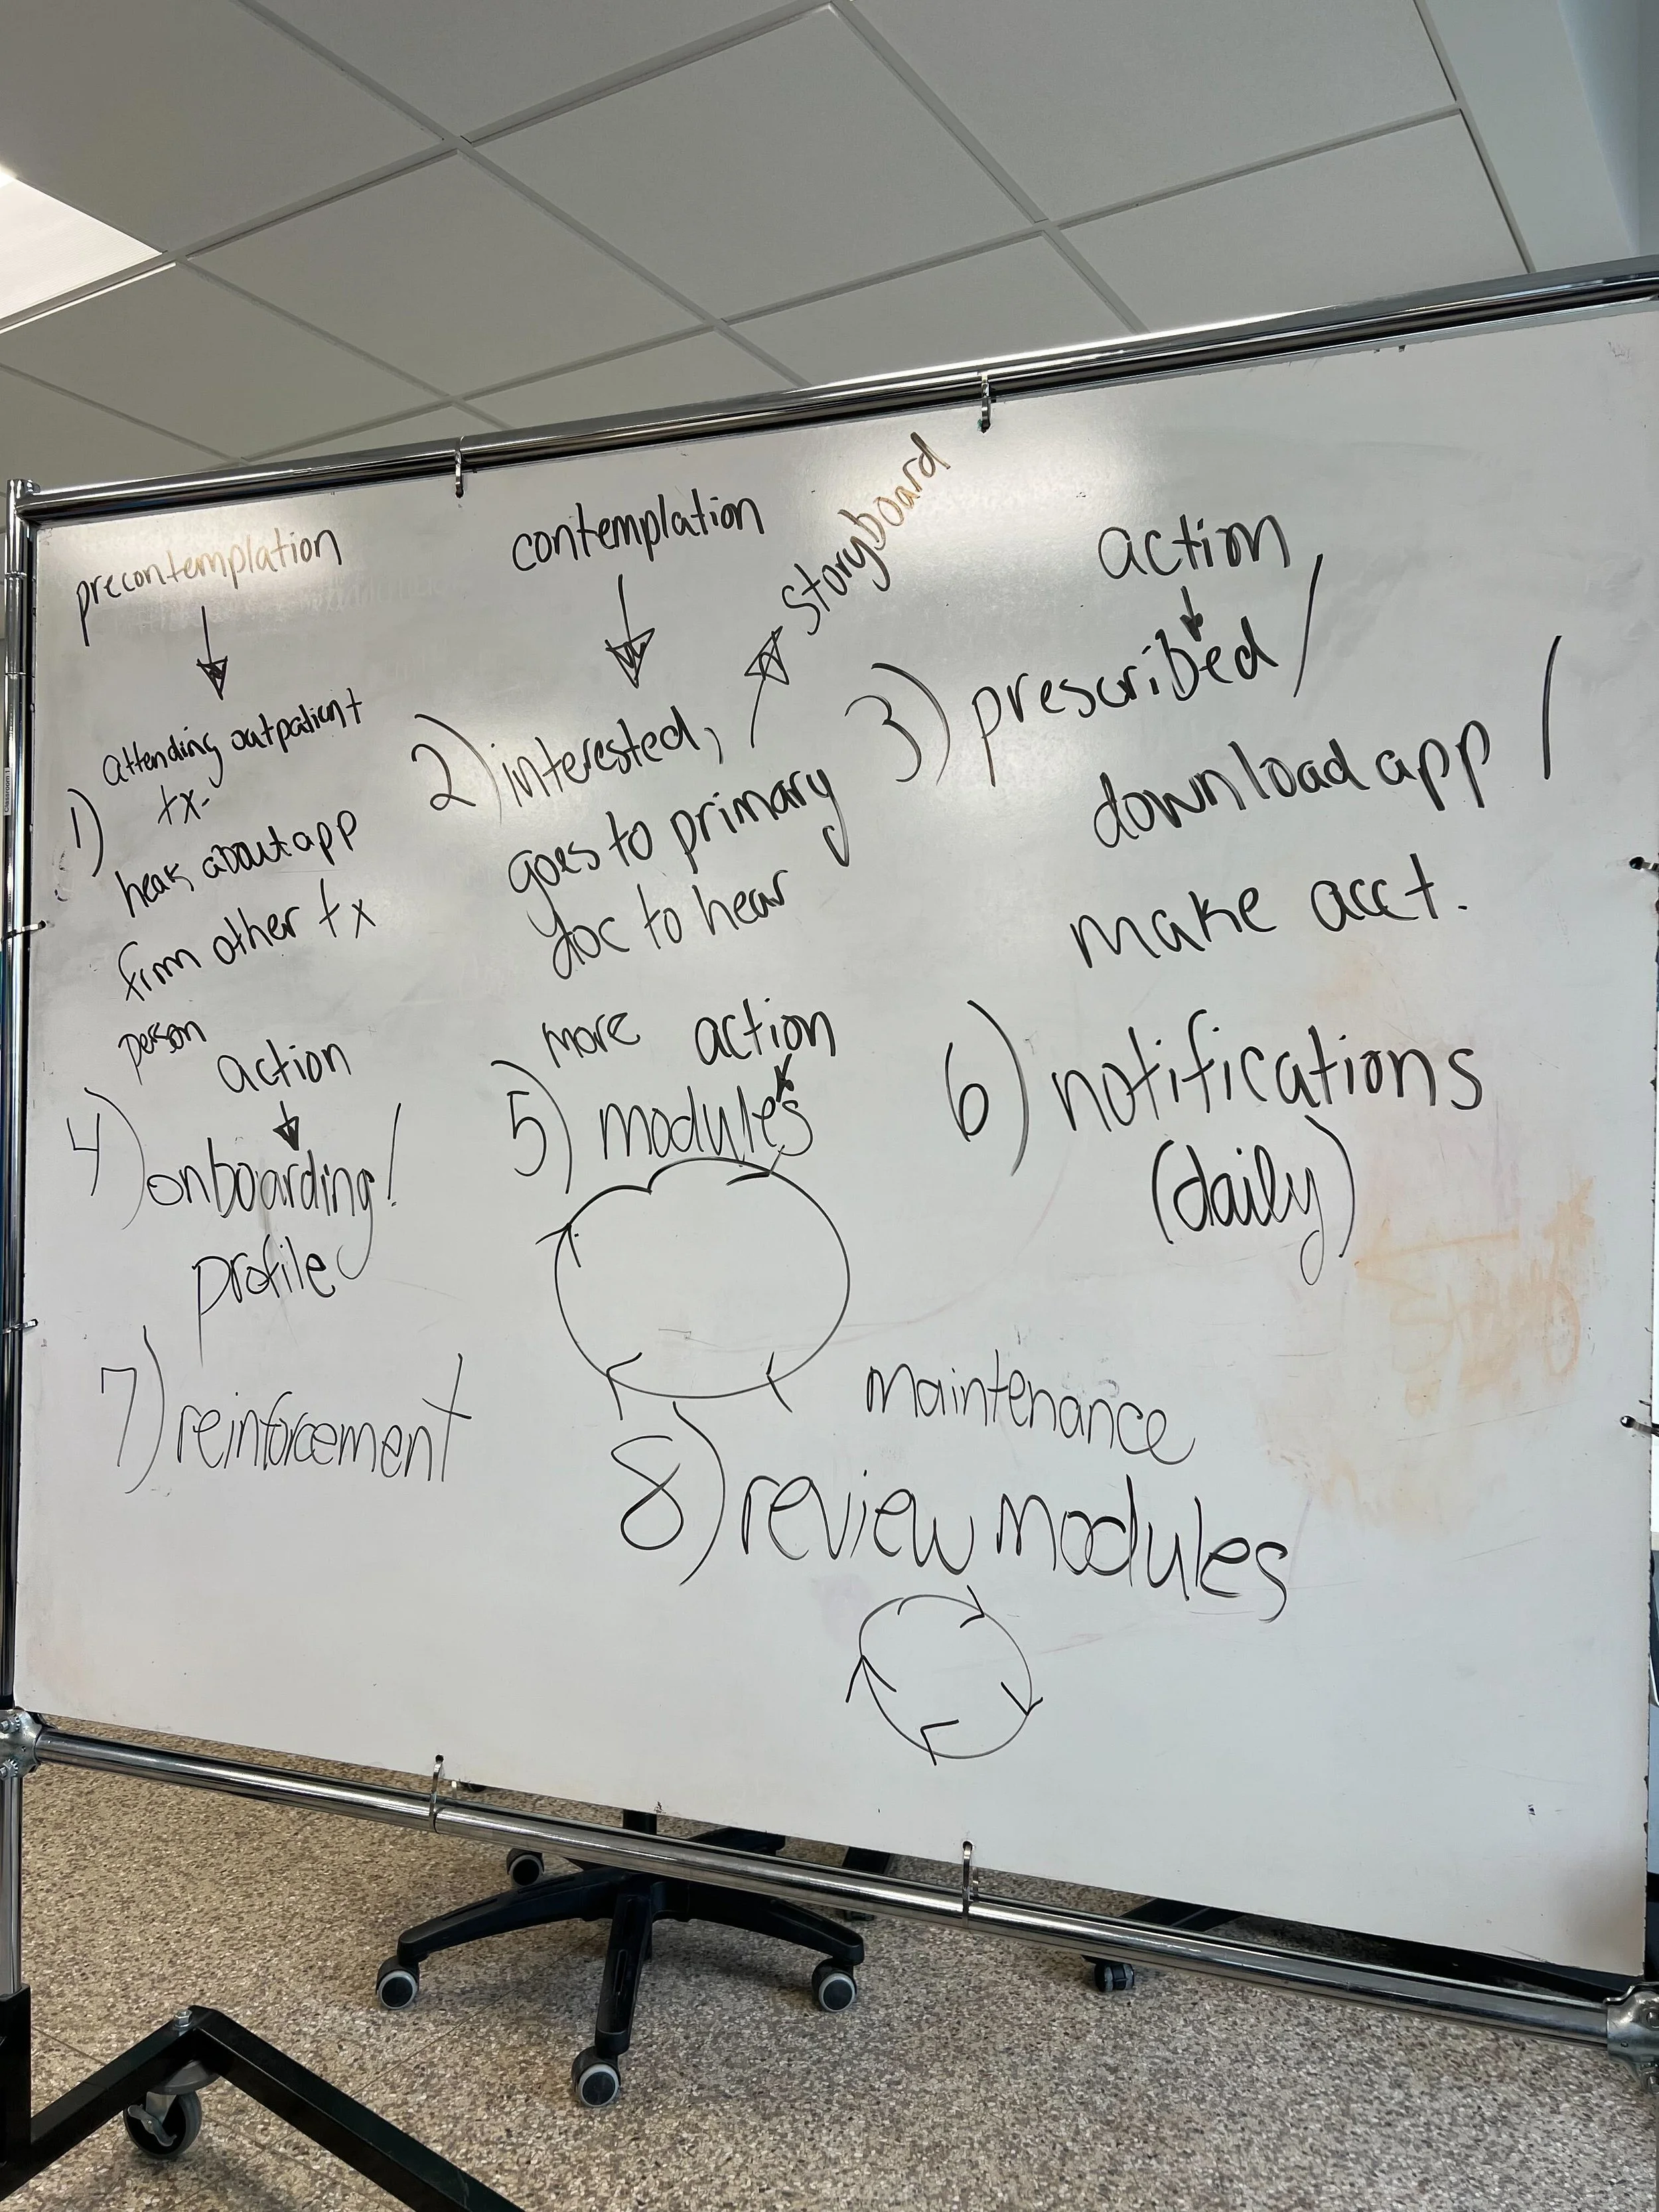 precontemplation
contemplation
storyboard
action
1) Attending outpatient
tx-
hears about app
from other tx
person
2) interested,
goes to primary
doc to hear
more
3) prescribed/
download app /
make acct.
action
4) onboarding/
profile
action
5) modules
6) notifications
(daily)
7) reinforcement
maintenance
8) review modules
Classroom 1